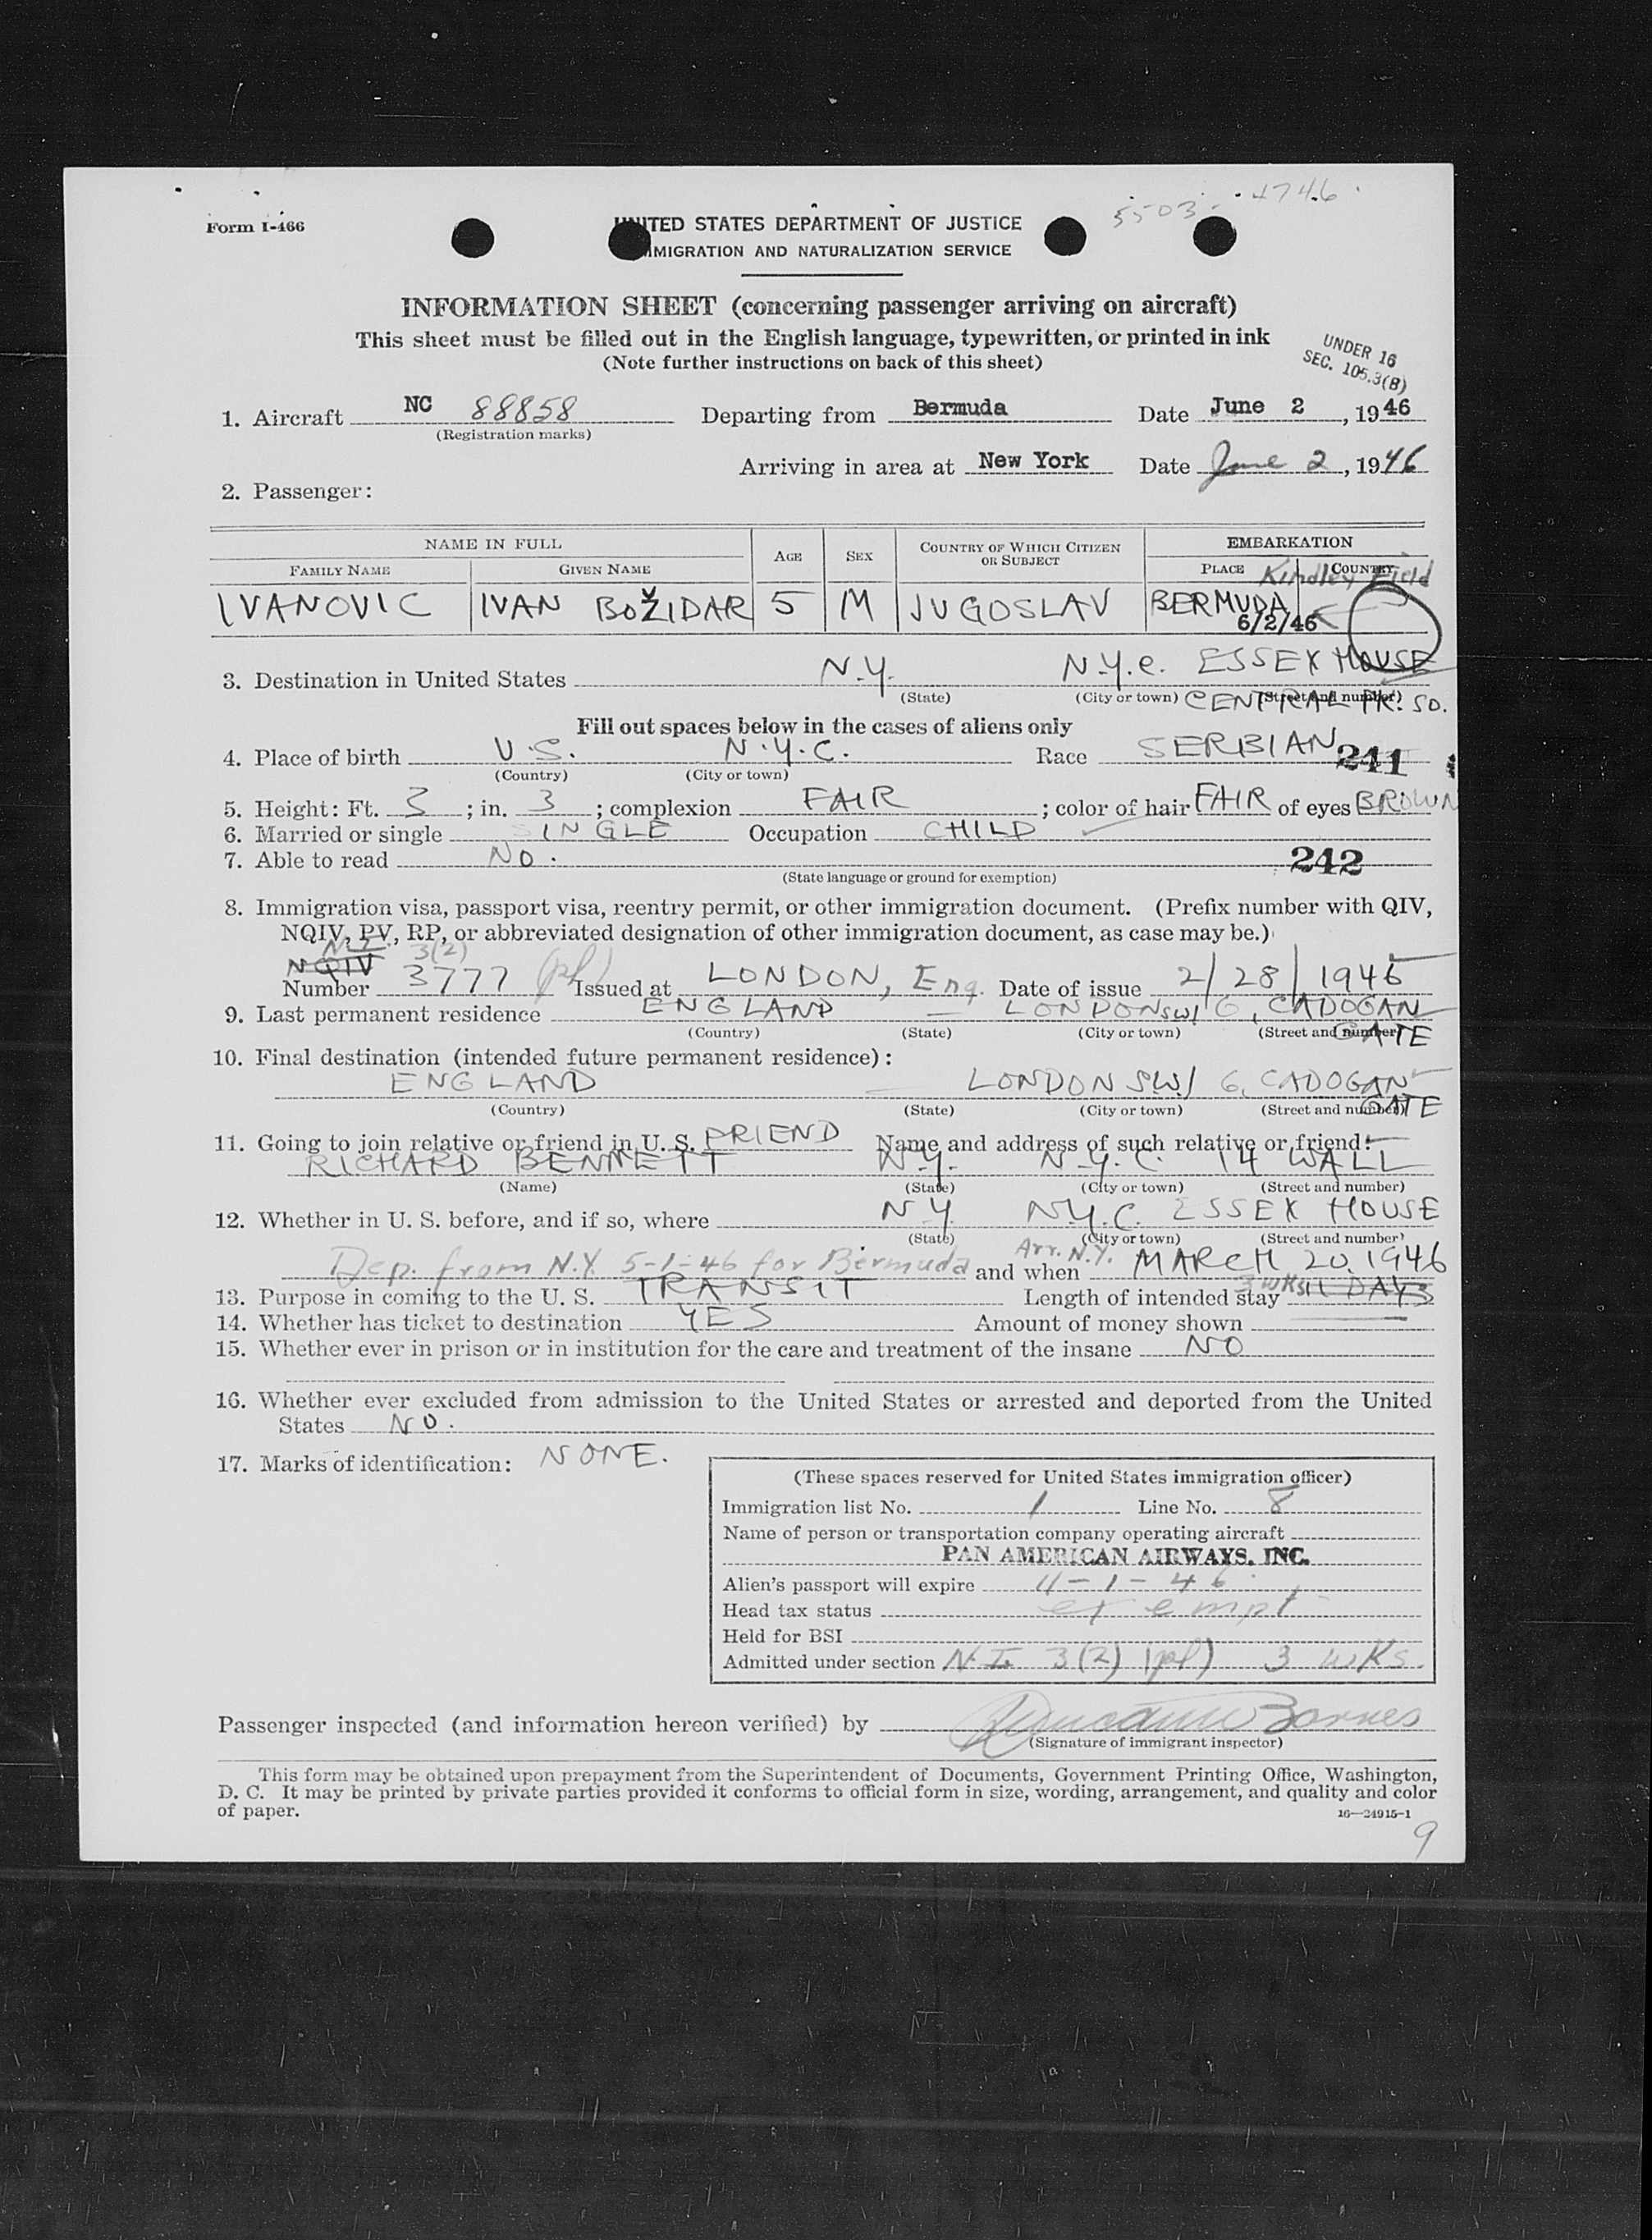 5503 - 4746
Form I-466
UNITED STATES DEPARTMENT OF JUSTICE
IMMIGRATION AND NATURALIZATION SERVICE
INFORMATION SHEET (concerning passenger arriving on aircraft)
This sheet must be filled out in the English language, typewritten, or printed in ink
(Note further instructions on back of this sheet)
UNDER 16
SEC. 105.3(B)
1. Aircraft NC 88858 Departing from Bermuda Date June 2, 1946
(Registration marks)
Arriving in area at New York Date June 2, 1946
2. Passenger:
NAME IN FULL AGE SEX COUNTRY OF WHICH CITIZEN OR SUBJECT EMBARKATION
FAMILY NAME GIVEN NAME PLACE COUNTRY
Kindley Field
IVANOVIC IVAN BOŽIDAR 5 M JUGOSLAV BERMUDA
6/2/46
3. Destination in United States N.Y. N.Y.C. ESSEX HOUSE
(State) (City or town) (Street and number) CENTRAL PK. SO.
Fill out spaces below in the cases of aliens only
4. Place of birth U.S. N.Y.C. Race SERBIAN 241
(Country) (City or town)
5. Height: Ft. 3; in. 3; complexion FAIR; color of hair FAIR of eyes BROWN
6. Married or single SINGLE Occupation CHILD
7. Able to read NO. 242
(State language or ground for exemption)
8. Immigration visa, passport visa, reentry permit, or other immigration document. (Prefix number with QIV,
NQIV, PV, RP, or abbreviated designation of other immigration document, as case may be.)
N.I. 3(2)
NQIV
Number 3777 (pl) Issued at LONDON, Eng. Date of issue 2/28/1946
9. Last permanent residence ENGLAND — LONDON SW1 6, CADOGAN
(Country) (State) (City or town) (Street and number) GATE
10. Final destination (intended future permanent residence):
ENGLAND — LONDON S.W.1 6, CADOGAN
(Country) (State) (City or town) (Street and number) GATE
11. Going to join relative or friend in U. S. FRIEND Name and address of such relative or friend:
RICHARD BENNETT N.Y. N.Y.C. 14 WALL
(Name) (State) (City or town) (Street and number)
12. Whether in U. S. before, and if so, where N.Y. N.Y.C. ESSEX HOUSE
(State) (City or town) (Street and number)
Dep. from N.Y. 5-1-46 for Bermuda and when Arr. N.Y. MARCH 20. 1946
13. Purpose in coming to the U. S. TRANSIT Length of intended stay 3 wks 11 DAYS
14. Whether has ticket to destination YES Amount of money shown
15. Whether ever in prison or in institution for the care and treatment of the insane NO
16. Whether ever excluded from admission to the United States or arrested and deported from the United
States NO.
17. Marks of identification: NONE.
(These spaces reserved for United States immigration officer)
Immigration list No. 1 Line No. 8
Name of person or transportation company operating aircraft
PAN AMERICAN AIRWAYS, INC.
Alien's passport will expire 11-1-46
Head tax status exempt
Held for BSI
Admitted under section N.I. 3(2) (pl) 3 wks.
Passenger inspected (and information hereon verified) by Barnes
(Signature of immigrant inspector)
This form may be obtained upon prepayment from the Superintendent of Documents, Government Printing Office, Washington,
D. C. It may be printed by private parties provided it conforms to official form in size, wording, arrangement, and quality and color
of paper.
16—24915-1
9